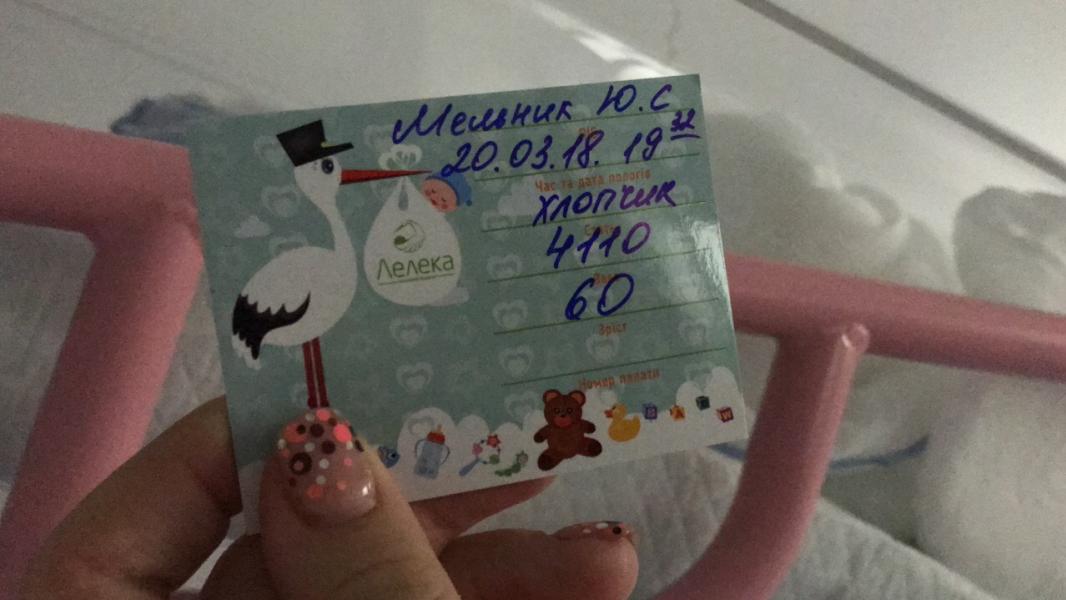 Мельник Ю.С
ПІБ
20.03.18. 19³²
Час та дата пологів
хлопчик
Стать
4110
Вага
60
Зріст
Номер палати
Лелека